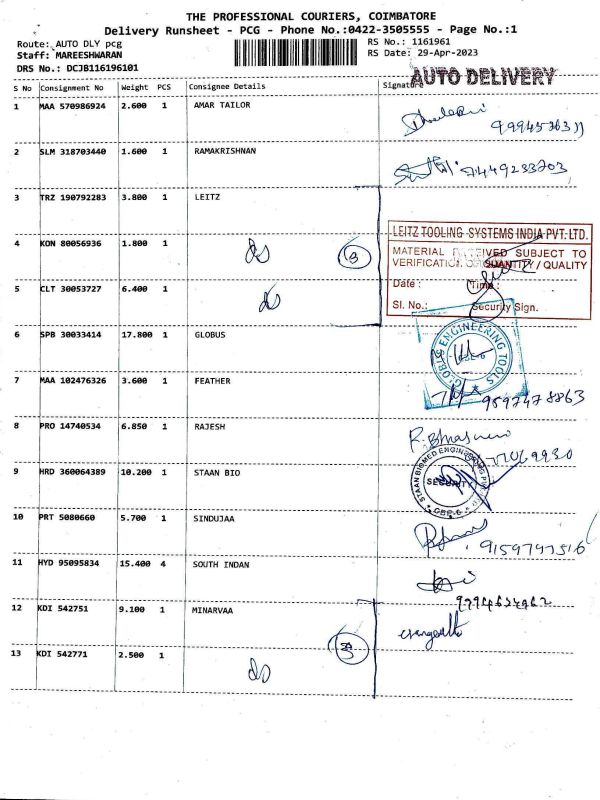 THE PROFESSIONAL COURIERS, COIMBATORE
Delivery Runsheet - PCG - Phone No.:0422-3505555 - Page No.:1
Route: AUTO DLY pcg
RS No.: 1161961
Staff: MAREESHWARAN
RS Date: 29-Apr-2023
DRS No.: DCJB116196101
AUTO DELIVERY
S No Consignment No Weight PCS Consignee Details Signature
1 MAA 570986924 2.600 1 AMAR TAILOR
2 SLM 318703440 1.600 1 RAMAKRISHNAN
7449233703
3 TRZ 190792283 3.800 1 LEITZ
LEITZ TOOLING SYSTEMS INDIA PVT. LTD.
MATERIAL RECEIVED SUBJECT TO
VERIFICATION OF QUANTITY / QUALITY
Date : Time :
Sl. No.: Security Sign.
4 KON 80056936 1.800 1 ds 3
5 CLT 30053727 6.400 1 ds
6 SPB 30033414 17.800 1 GLOBUS
GLOBUS ENGINEERING TOOLS
CBE-6
7 MAA 102476326 3.600 1 FEATHER
9597478863
8 PRO 14740534 6.850 1 RAJESH
9 HRD 360064389 10.200 1 STAAN BIO
STAAN BIOMED ENGINEERING PRIVATE
SECURITY
CBE-6
10 PRT 5080660 5.700 1 SINDUJAA
9159797516
11 HYD 95095834 15.400 4 SOUTH INDAN
12 KDI 542751 9.100 1 MINARVAA
13 KDI 542771 2.500 1 ds